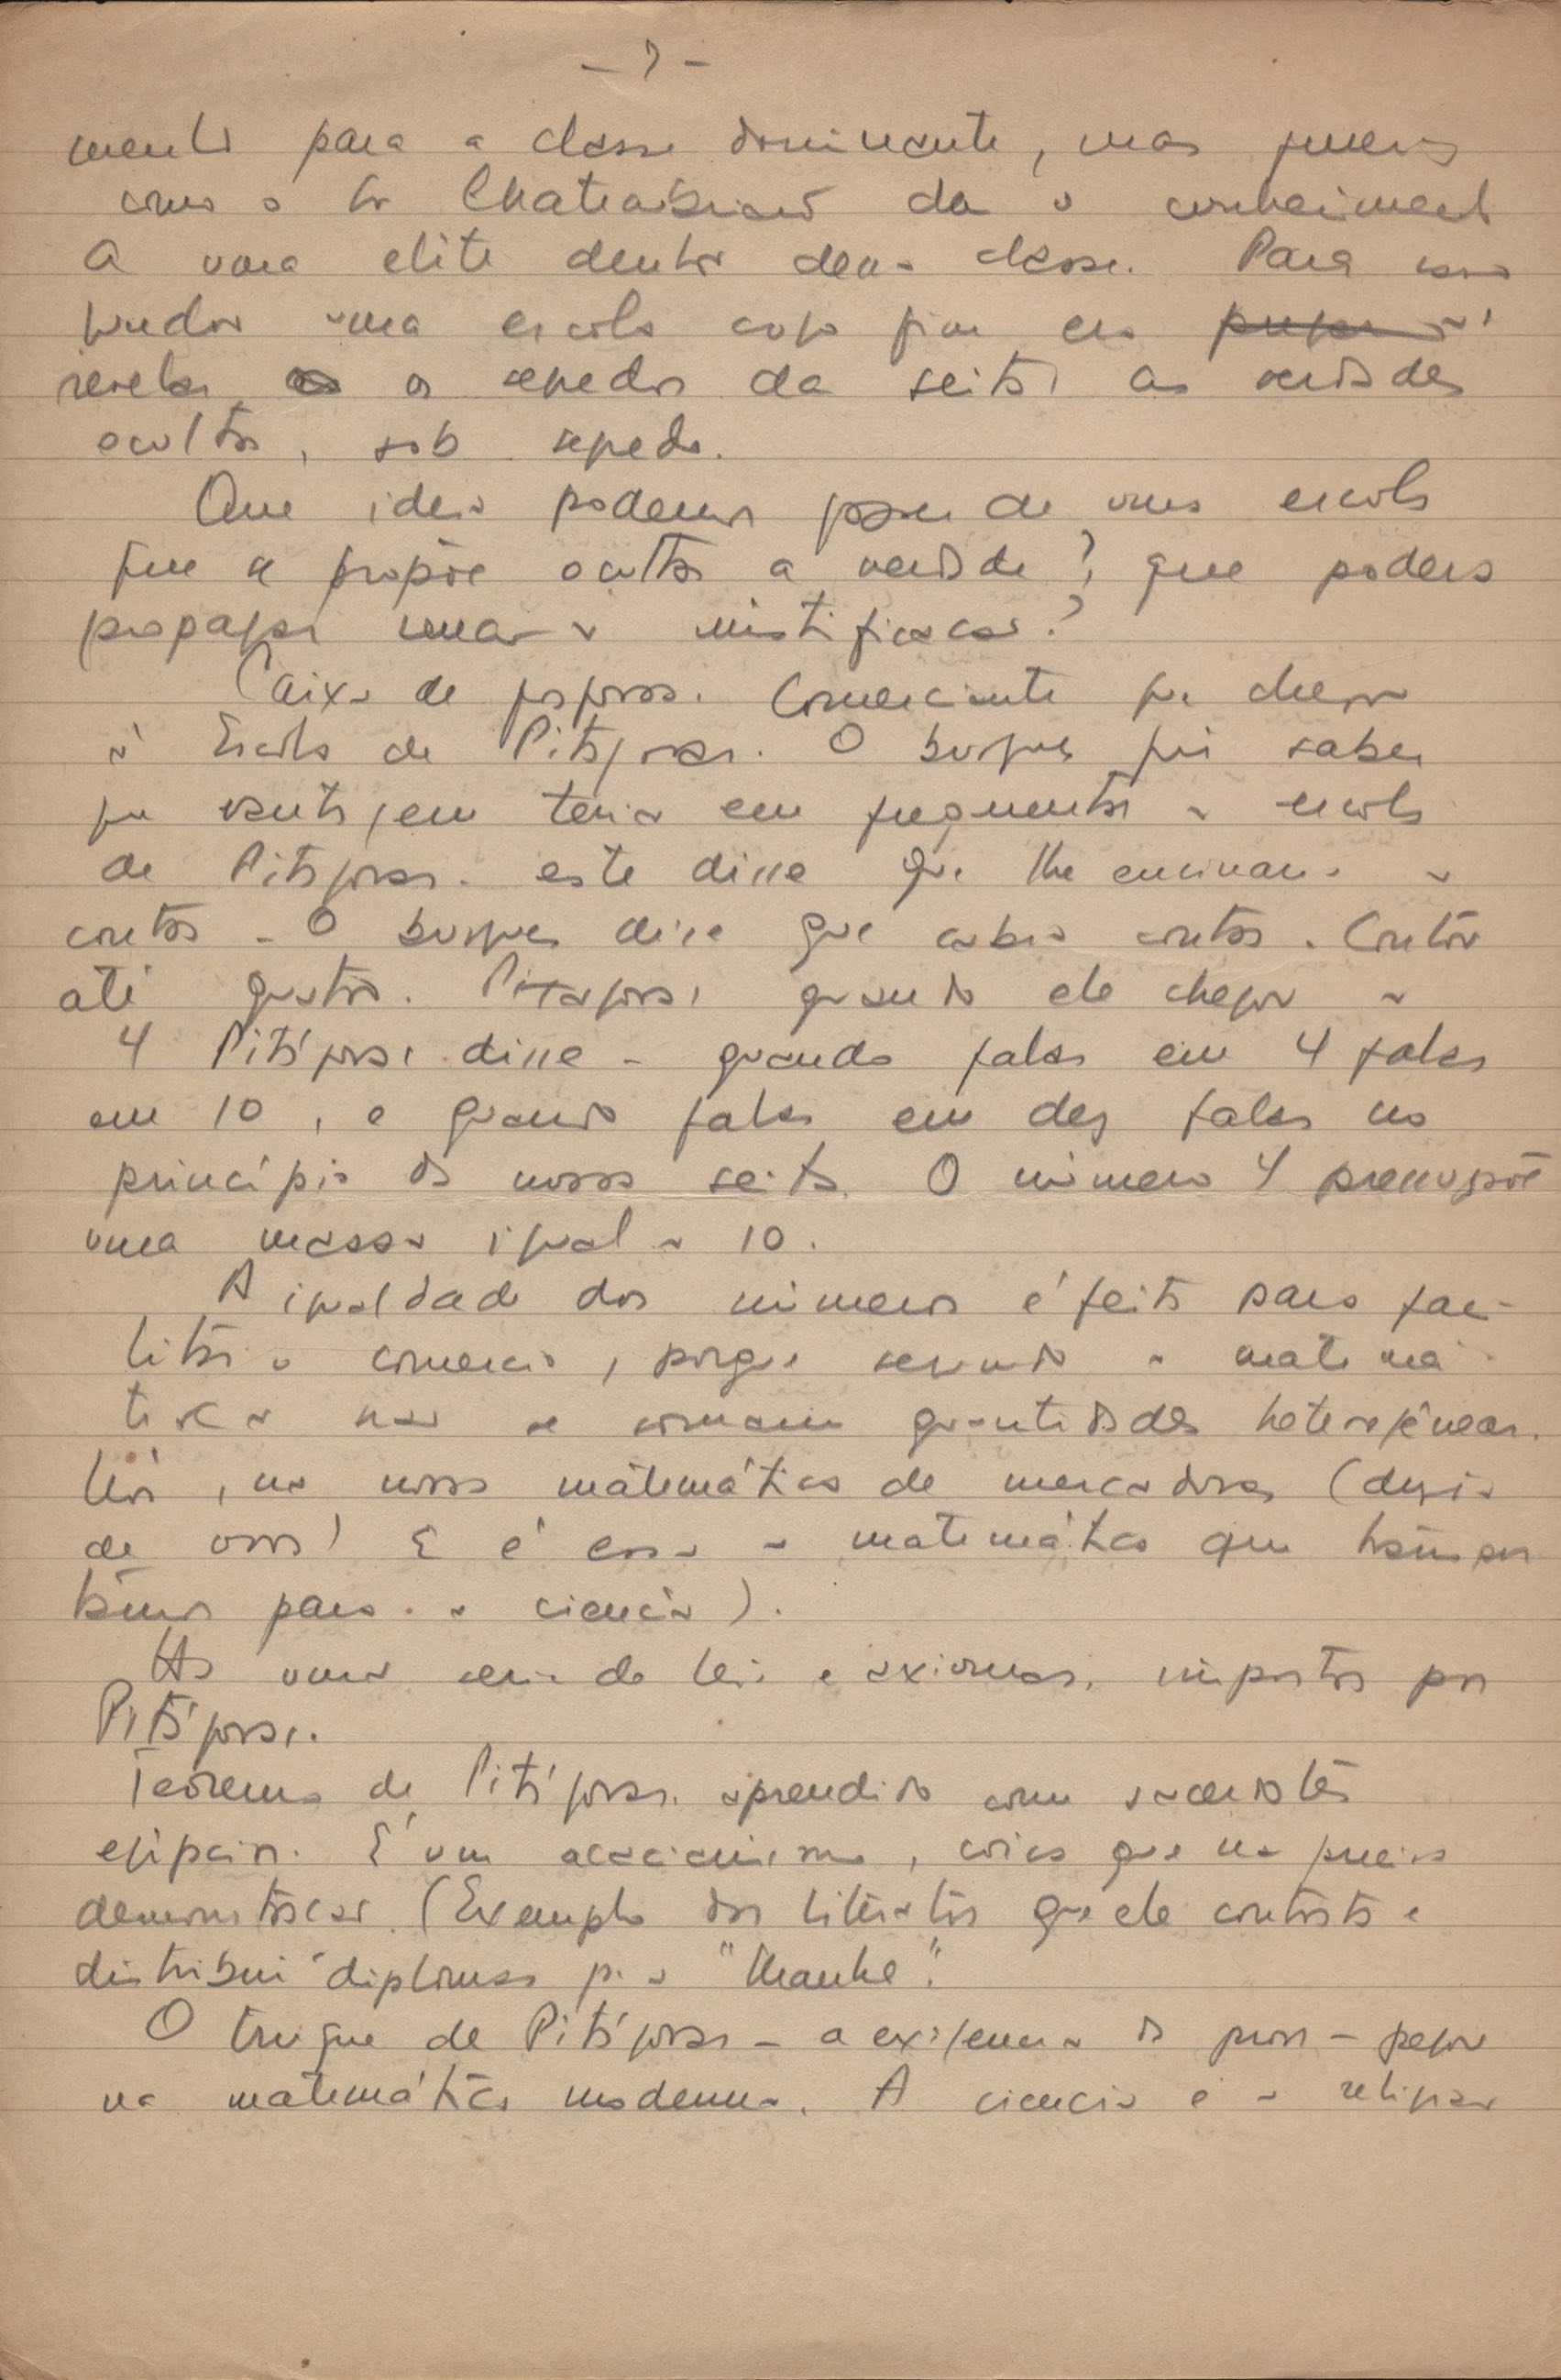 - 7 -
mente para a classe dominante, mas queria
como o Sr Chateaubriand da o conhecimento
a uma elite dentro dessa classe. Para isso
fundou uma escola cujo fim era
revelar os segredos da seita, as verdades
ocultas, sob segredo.
Que ideia podemos fazer de uma escola
que se propõe ocultar a verdade?, que poderá
propagar senão a mistificacao?
Caixa de fosforos. Comerciante que chegou
à Escola de Pitagoras. O burguês quis saber
que vantagem teria em frequentar a escola
de Pitagoras. este disse que lhe ensinaria a
contar - O burguês disse que sabia contar. Contou
até quatro. Pitagoras, quando ele chegou a
4 Pitágoras disse - quando falas em 4 falas
em 10, e quando falas em dez falas no
principio da nossa seita. O número 4 pressupõe
uma massa igual a 10.
A igualdade dos números é feita para faci-
litar o comercio, porque segundo a matemá-
tica não se somam quantidades heterogêneas.
Nós, na nossa matemática de mercadores (duzia
de ovos! E é essa a matemática que transpor
tamos para a ciencia).
Ha uma serie de leis e axiomas, impostos por
Pitágoras.
Teorema de Pitágoras, aprendido com sacerdotes
egipcios. É um acacianismo, coisa que não precisa
demonstracao. (Exemplo dos literatos que ele contrata e
distribui diplomas p. a "Manhã".
O truque de Pitágoras - a exigencia da prova - pegou
na matemática moderna. A ciencia e a religiao